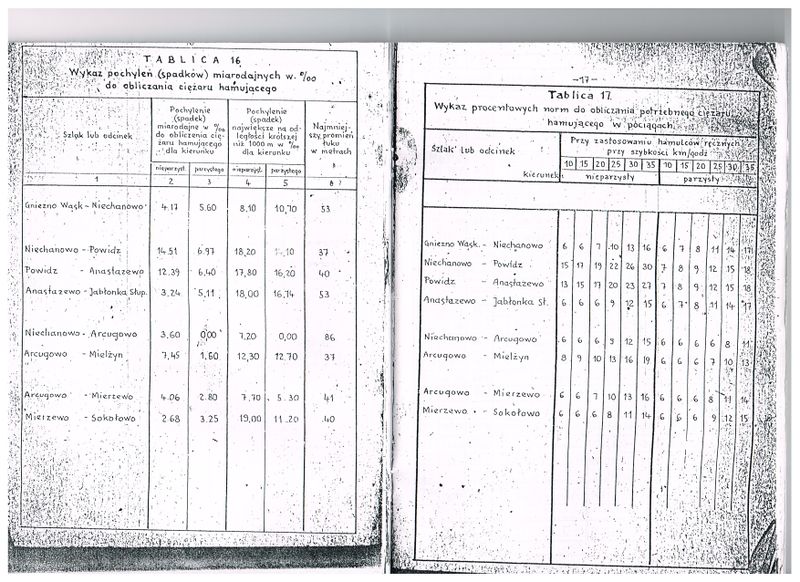 TABLICA 16
Wykaz pochyleń (spadków) miarodajnych w ‰
do obliczania ciężaru hamującego
Szlak lub odcinek
Pochylenie
(spadek)
miarodajne w ‰
do obliczenia cię-
żaru hamującego
dla kierunku
Pochylenie
(spadek)
największe na od-
ległości krótszej
niż 1000 m w ‰
dla kierunku
Najmniej-
szy promień
łuku
w metrach
nieparzyst. parzystego nieparzyst. parzystego
1 2 3 4 5 6
Gniezno Wąsk - Niechanowo 4.17 5.60 8,10 10,70 53
Niechanowo - Powidz 14.51 6.97 18,20 37
Powidz - Anastazewo 12.39 6,40 17,80 16,20 40
Anastazewo - Jabłonka Słup. 3,24 5,11 18,00 16,14 53
Niechanowo - Arcugowo 3,60 0,00 7,20 0,00 86
Arcugowo - Mielżyn 7,45 1.60 12,30 12.70 37
Arcugowo - Mierzewo 4.06 2.80 7,70 5.30 41
Mierzewo - Sokołowo 2.68 3.25 19,00 11.20 40
-17-
Tablica 17
Wykaz procentowych norm do obliczania potrzebnego ciężaru
hamującego w pociągach.
Szlak lub odcinek
kierunek
Przy zastosowaniu hamulców ręcznych
przy szybkości km/godz
10 15 20 25 30 35 10 15 20 25 30 35
nieparzysty parzysty
Gniezno Wąsk. - Niechanowo 6 6 7 10 13 16 6 7 8 11 14 17
Niechanowo - Powidz 15 17 19 22 26 30 7 8 9 12 15 18
Powidz - Anastazewo 13 15 17 20 23 27 7 8 9 12 15 18
Anastazewo - Jabłonka Sł. 6 6 6 9 12 15 6 7 8 11 14 17
Niechanowo - Arcugowo 6 6 6 9 12 15 6 6 6 6 8 11
Arcugowo - Mielżyn 8 9 10 13 16 19 6 6 6 7 10 13
Arcugowo - Mierzewo 6 6 7 10 13 16 6 6 6 8 11 14
Mierzewo - Sokołowo 6 6 6 8 11 14 6 6 6 9 12 15